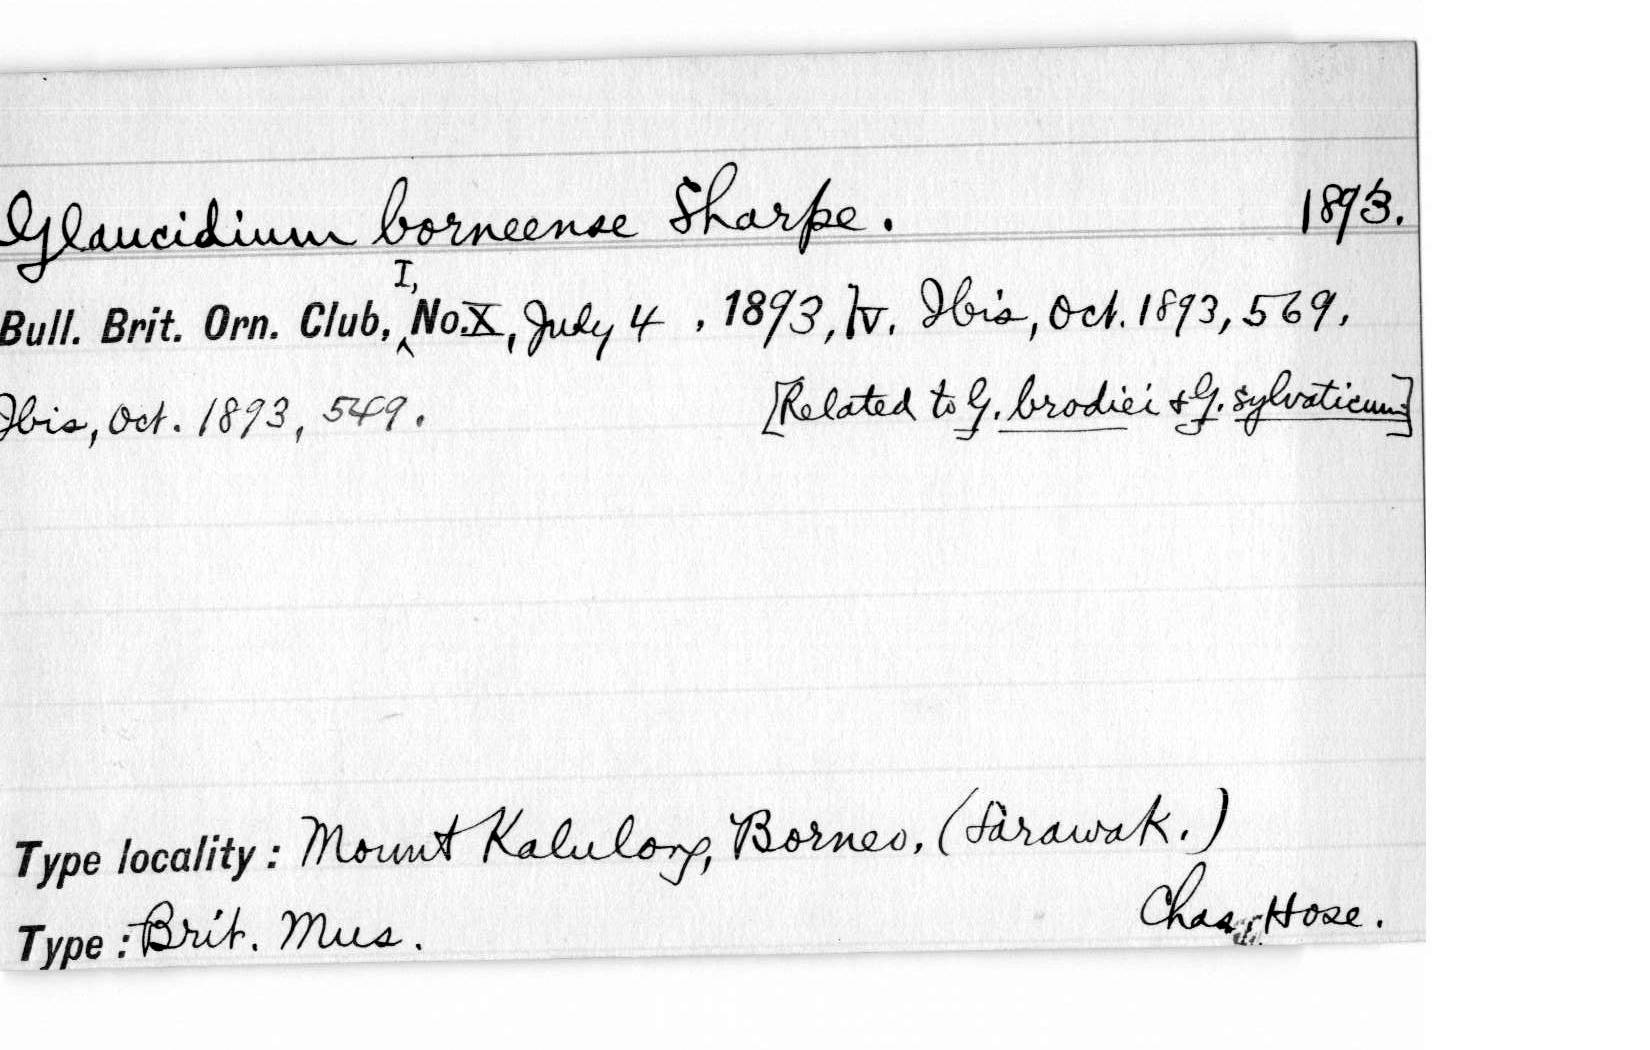 Glaucidium borneense Sharpe. 1893.
Bull. Brit. Orn. Club, I, No. X, July 4, 1893, lv. Ibis, Oct. 1893, 569,
Ibis, Oct. 1893, 549. [Related to G. brodiei & G. sylvaticum]
Type locality: Mount Kalulong, Borneo, (Sarawak.)
Chas. Hose.
Type: Brit. Mus.